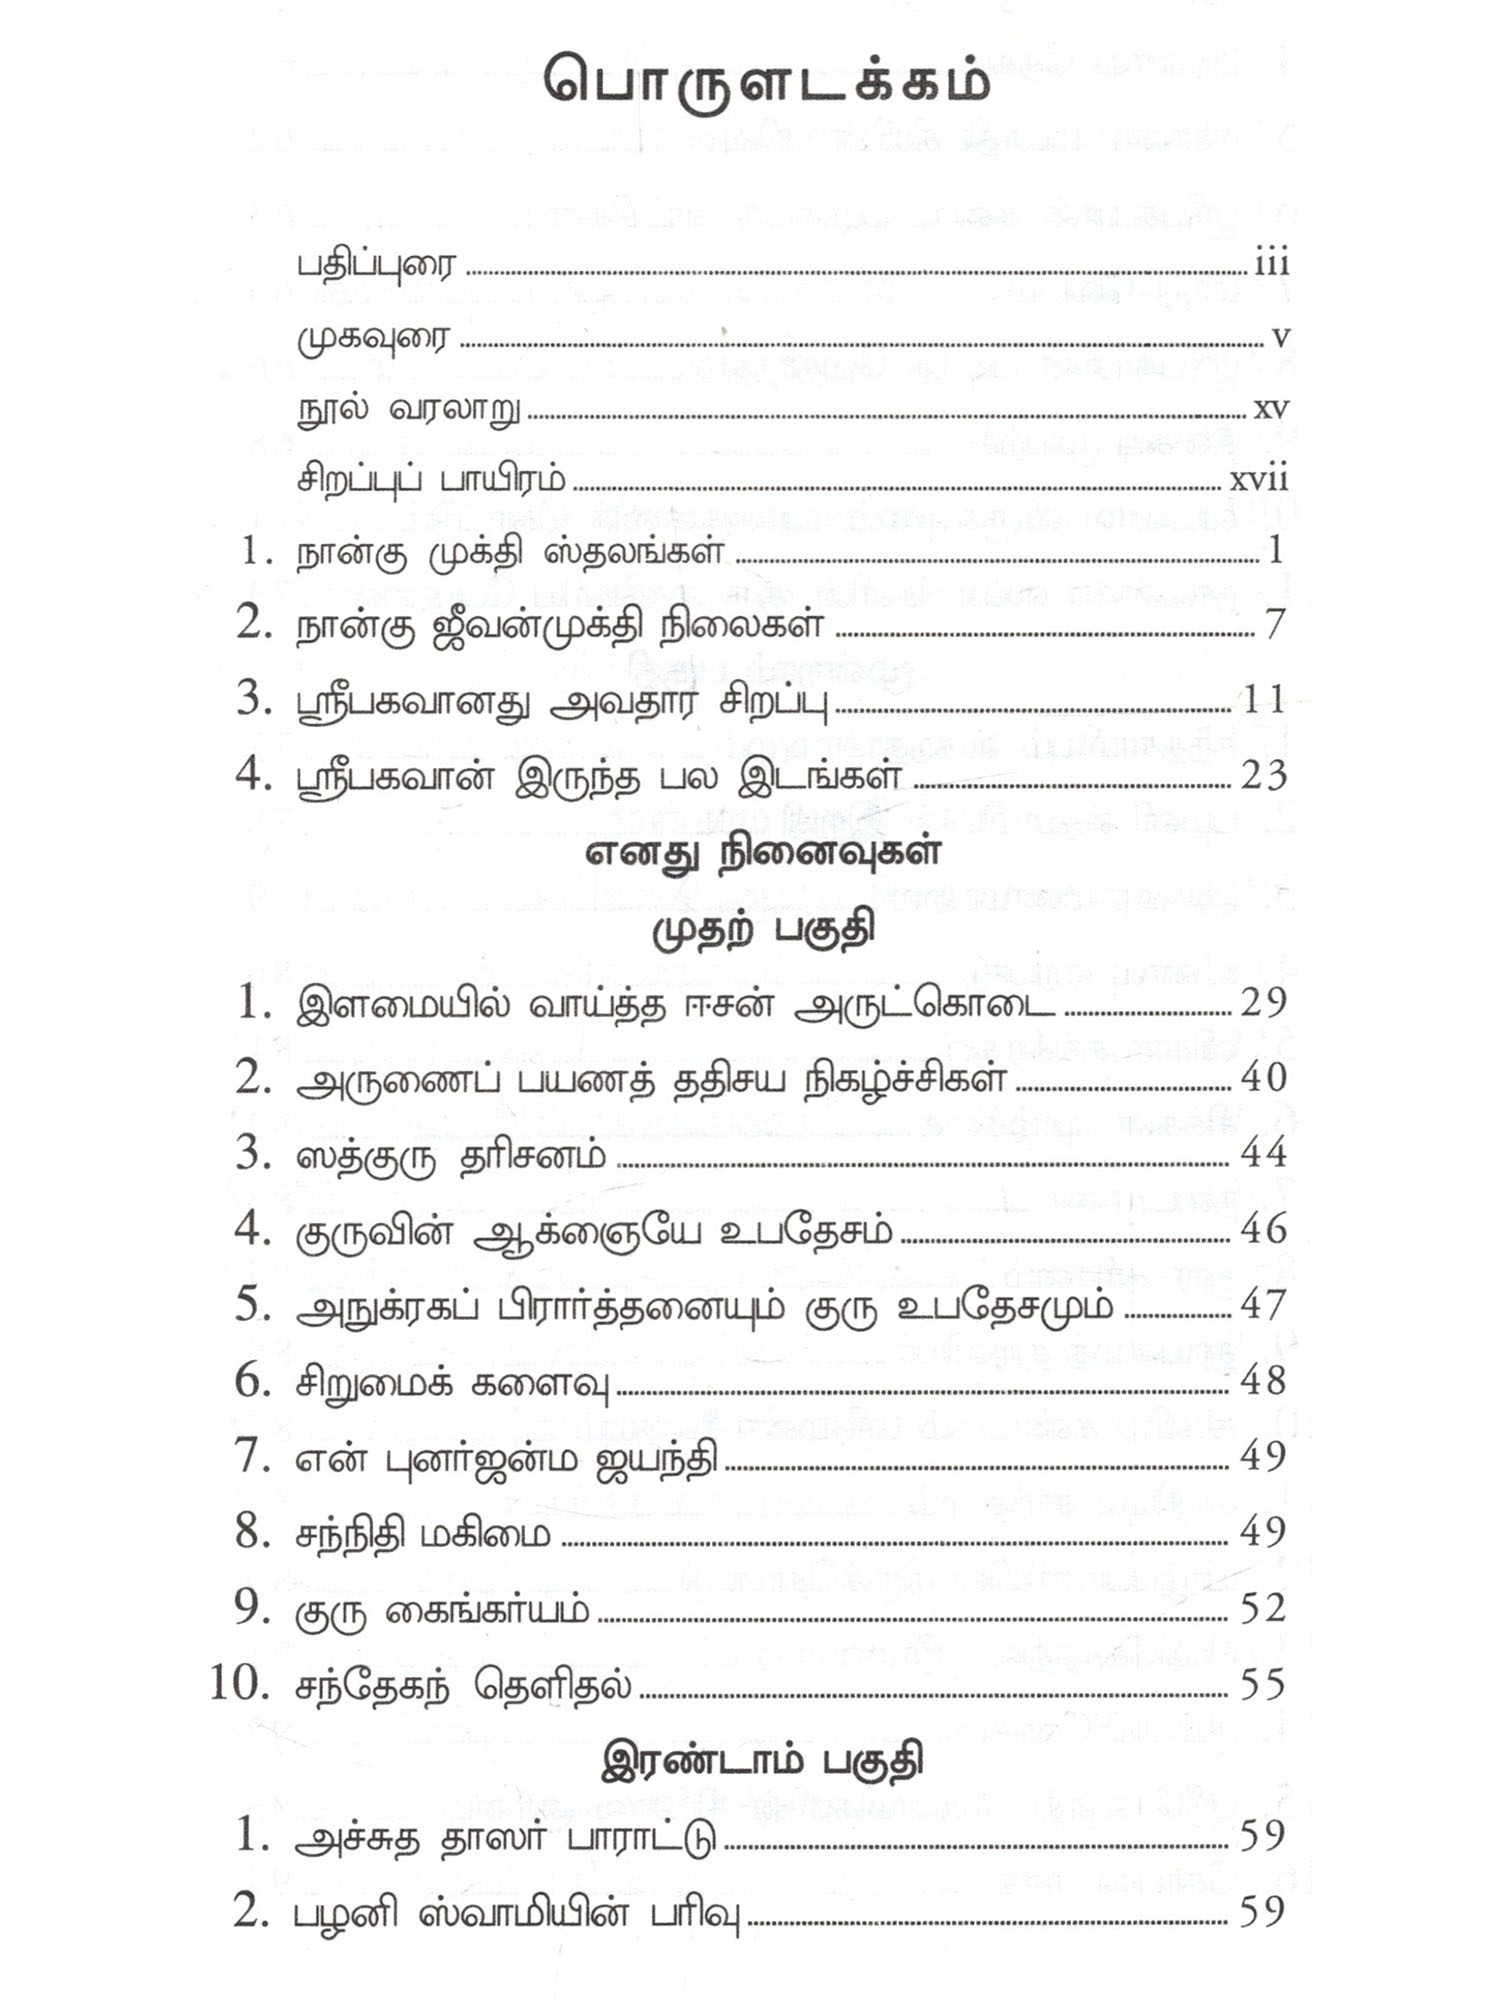 பொருளடக்கம்
பதிப்புரை ..... iii
முகவுரை ..... v
நூல் வரலாறு ..... xv
சிறப்புப் பாயிரம் ..... xvii
1. நான்கு முக்தி ஸ்தலங்கள் ..... 1
2. நான்கு ஜீவன்முக்தி நிலைகள் ..... 7
3. ஸ்ரீபகவானது அவதார சிறப்பு ..... 11
4. ஸ்ரீபகவான் இருந்த பல இடங்கள் ..... 23
எனது நினைவுகள்
முதற் பகுதி
1. இளமையில் வாய்த்த ஈசன் அருட்கொடை ..... 29
2. அருணைப் பயணத் ததிசய நிகழ்ச்சிகள் ..... 40
3. ஸத்குரு தரிசனம் ..... 44
4. குருவின் ஆக்ஞையே உபதேசம் ..... 46
5. அநுக்ரகப் பிரார்த்தனையும் குரு உபதேசமும் ..... 47
6. சிறுமைக் களைவு ..... 48
7. என் புனர்ஜன்ம ஜயந்தி ..... 49
8. சந்நிதி மகிமை ..... 49
9. குரு கைங்கர்யம் ..... 52
10. சந்தேகந் தெளிதல் ..... 55
இரண்டாம் பகுதி
1. அச்சுத தாஸர் பாராட்டு ..... 59
2. பழனி ஸ்வாமியின் பரிவு ..... 59